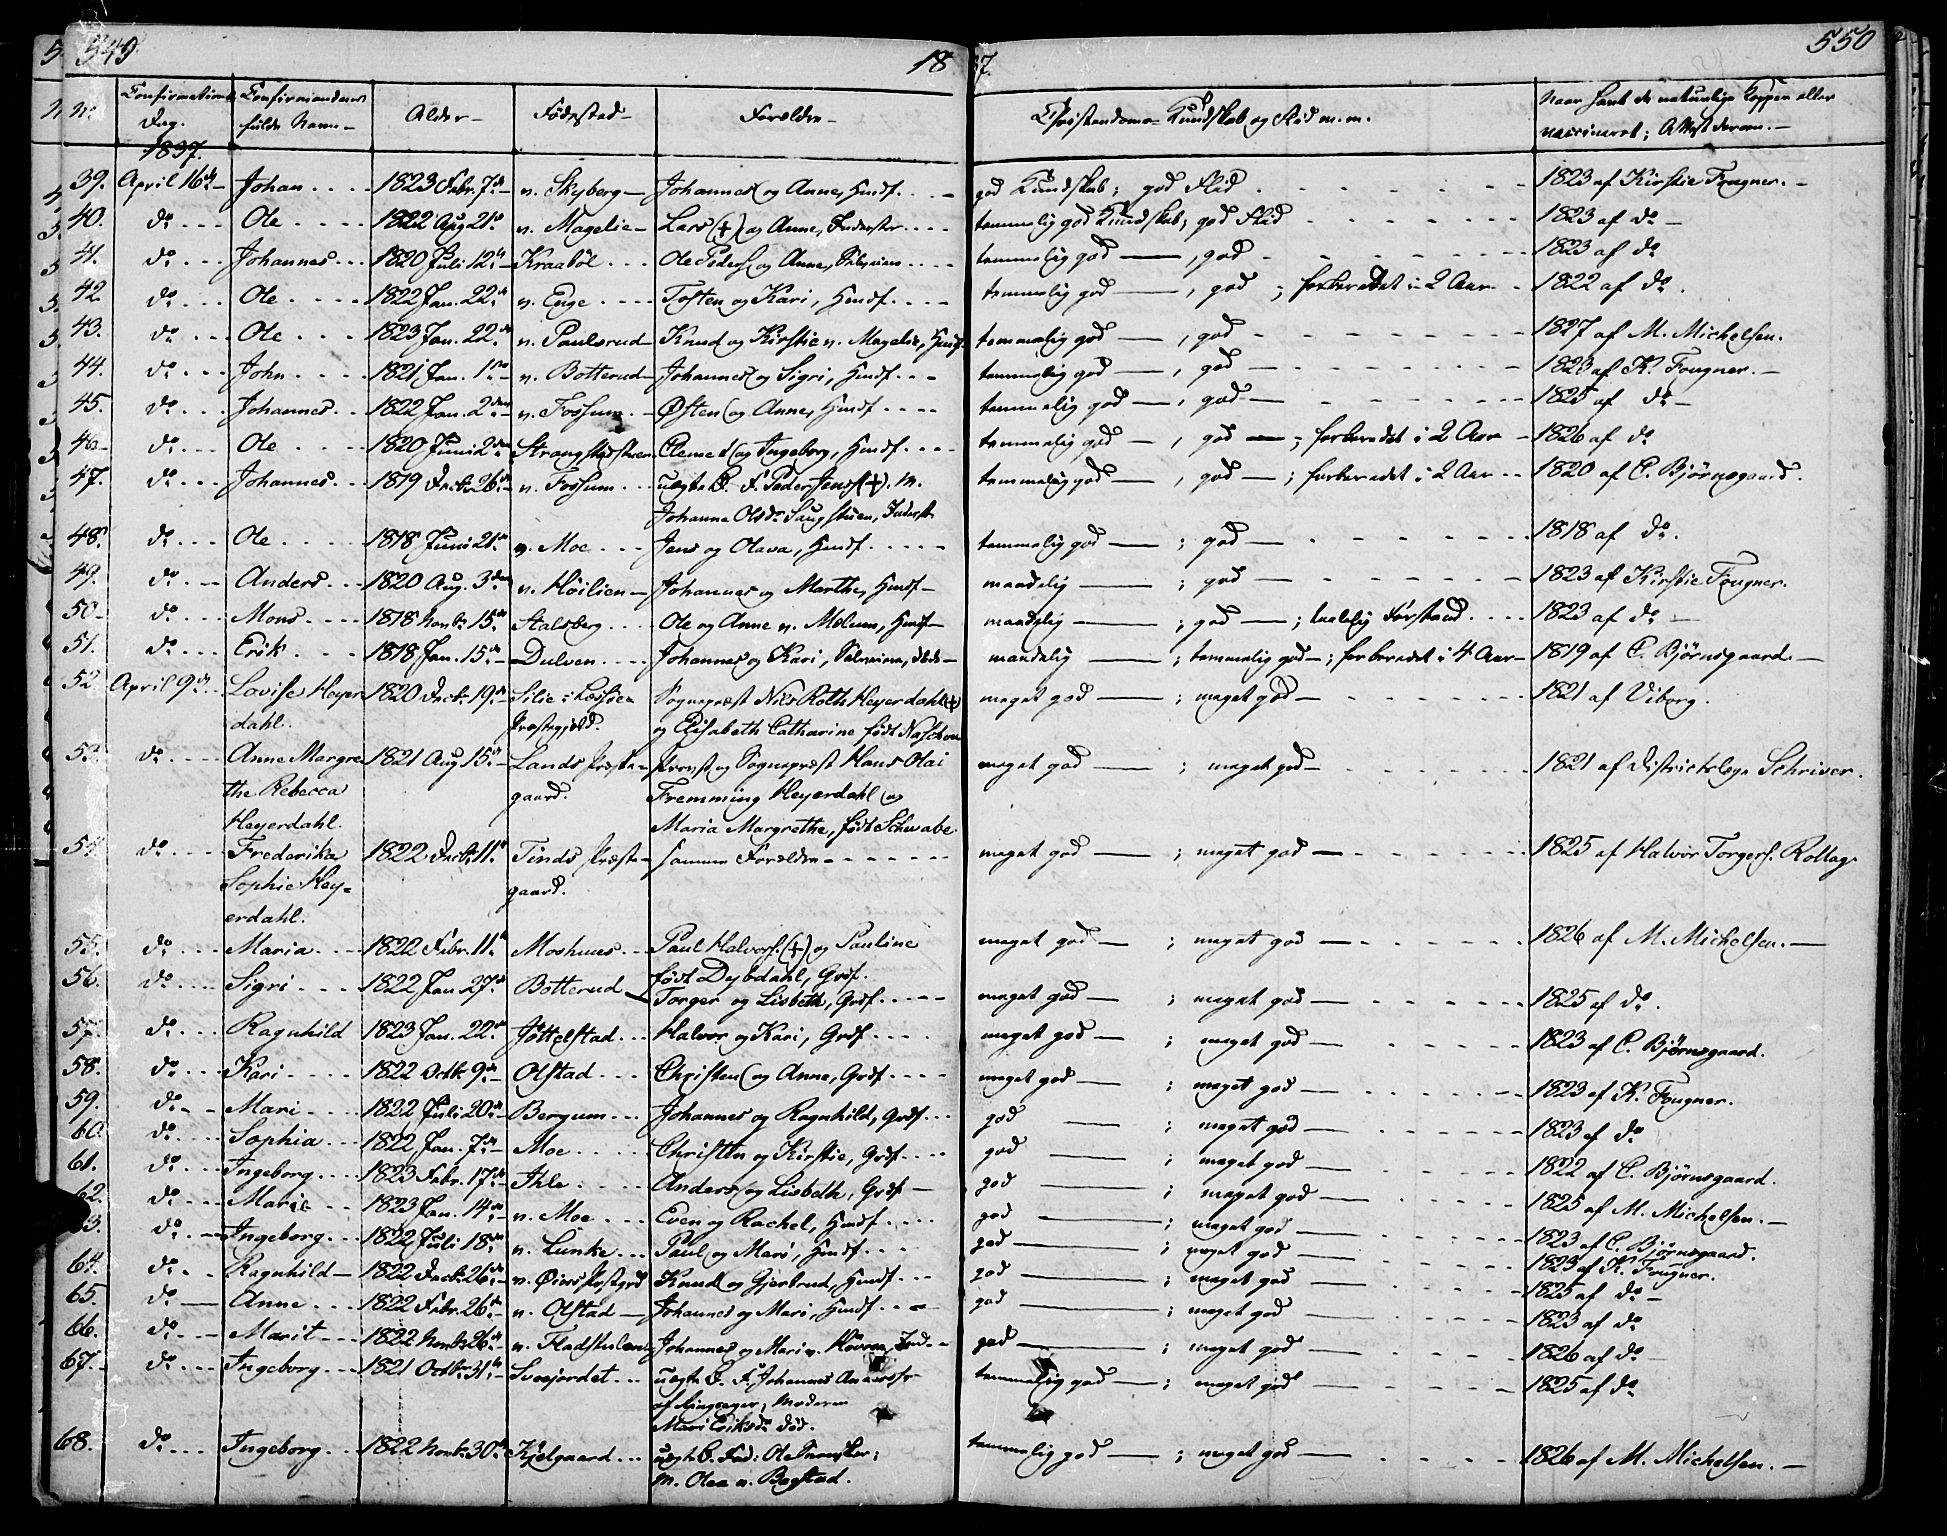 549 1837. 550
No. Confirmations Dag. Confirmandernes fulde Navn Alder Fødested Forældre Christendoms-Kundskab og Flid m.m. Naar havt de naturlige Kopper eller vaccineret; Attest derom.
1837.
39. April 16de Johan 1823 Febr. 7de n. Skyberg Johannes og Anne, Hmdf. god Kundskab; god Flid 1823 af Kirstie Fougner.
40. do Ole 1822 Aug 21de n. Magelie Lars (+) og Anne, Inderster temmelig god Kundskab; god Flid 1823 af do
41. do Johannes 1820 Juli 12te Kraaböl Ole Peders. og Anne, temmelig god — , god 1823 af do
42. do Ole 1822 Jan. 22de n. Enge Tosten og Kari, Hmdf. temmelig god — , god ; forberedet i 2 Aar 1822 af do.
43. do Ole 1823 Jan. 22de n. Paulsrud Knud og Kirstie n. Magelie, Hmdf. temmelig god — , god 1827 af M. Michelsen.
44. do John 1821 Jan. 1ste n. Botterud Johannes og Sigri, Hmdf. temmelig god — , god 1823 af K. Fougner.
45. do Johannes 1822 Jan. 2den n. Fossum Østen og Anne, Hmdf. temmelig god — , god 1825 af do
46 do Ole 1820 Juni 2den Clemed og Ingeborg, Hmdf. temmelig god — , god — ; forberedet i 2 Aar 1826 af do
47. do Johannes 1819 Decb. 26de n. Fossum uægte B. F. Peder Jens. (+). M. temmelig god — , god — ; forberedet i 2 Aar 1820 af C. Björnsgaard.
Johanna Olsdr. Saugstuen, Inderst
48. do Ole 1818 Juni 21de n. Moe Jens og Olava, Hmdf. temmelig god — ; god 1818 af do.
49. do Anders 1820 Aug. 3den n. Höilien Johannes og Marthe, Hmdf. maadelig — ; god 1823 af Kirstie Fougner.
50 do Mons 1818 Novb. 15de Stalsberg Ole og Anne n. Melum, Hmdf. maadelig — ; god — ; taalelig Forstand 1823 af do
51. do Erik 1818 Jan. 15de Dulven Johannes og Kari, maadelig — ; temmelig god — ; forberedet i 4 Aar 1819 af C. Björnsgaard.
52. April 9de Lovise Heyer 1820 Decb. 19de Silie i Lessöe Sognepræst Nils Roth Heyerdahl (+) meget god — ; meget god 1821 af Viborg.
dahl. Præstegjeld. og Elisabeth Catharine født
53. do Anne Margre 1821 Aug 15de Lands Præste Provst og Sognepræst Hans Olai meget god — ; meget god 1821 af Districtslæge Schriver.
the Rebecca gaard. Fremming Heyerdahl og
Heyerdahl. Maria Margrethe, født Schwabe
54. do Frederika 1822 Decb. 11te Tinds Præste samme Forældre meget god — ; meget god — 1825 af Halvor Torgers. Rollag
Sophie Hey= gaard.
erdahl.
55. do Maria 1822 Febr. 11te Moshuus Paul Halvors. (+) og Pauline meget god — ; meget god — 1826 af M. Michelsen.
født Dybdahl, Grdf.
56. do Sigri 1822 Jan. 27de Botterud Torger og Lisbeth, Grdf. meget god — ; meget god — 1825 af do.
57. do Ragnhild 1823 Jan. 22de Jöttelstad Halvor og Kari, Grdf. meget god — ; meget god — 1823 af C. Björnsgaard.
58. do Kari 1822 Octb. 9de Olstad Christen og Anne, Grdf. meget god — ; meget god — 1823 af K. Fougner.
59. do Mari 1822 Juli 20de Bergum Johannes og Ragnhild, Grdf. god — ; meget god — 1823 af do
60. do Sophia 1822 Jan. 7de Moe Christen og Kirstie, Grdf. god — ; meget god — 1822 af C. Björnsgaard.
61. do Ingeborg 1823 Febr. 17de Ihle Anders og Lisbeth, Grdf. god — ; meget god — 1825 af M. Michelsen.
62. do Marie 1823 Jan. 14de n. Moe Even og Rachel, Hmdf. god — ; meget god — 1823 af C. Björnsgaard.
63. do Ingeborg 1822 Juli 18de n. Lunke Paul og Mari, Hmdf. god — ; meget god — 1823 af K. Fougner.
64. do Ragnhild 1822 Decb. 26de Knud og Gjertrud, Hmdf. god — ; meget god — 1825 af do
65. do Anne 1822 Febr. 26de n. Olstad Johannes og Mari, Hmdf. god — ; meget god — 1823 af do
66. do Marit 1822 Novb. 26de Johannes og Mari n. god — ; meget god — 1826 af do
67. do Ingeborg 1821 Octbr. 31te Sveejordet uægte B. F. Johannes Anders. temmelig god — ; meget god 1825 af do
Moderen
Mari Eriksdr. død.
68. do Ingeborg 1822 Novb. 30te Kjelgaard uægte B. Fad: Ole temmelig god — ; meget god — 1826 af M. Michelsen.
M. Olea n. Bogstad.